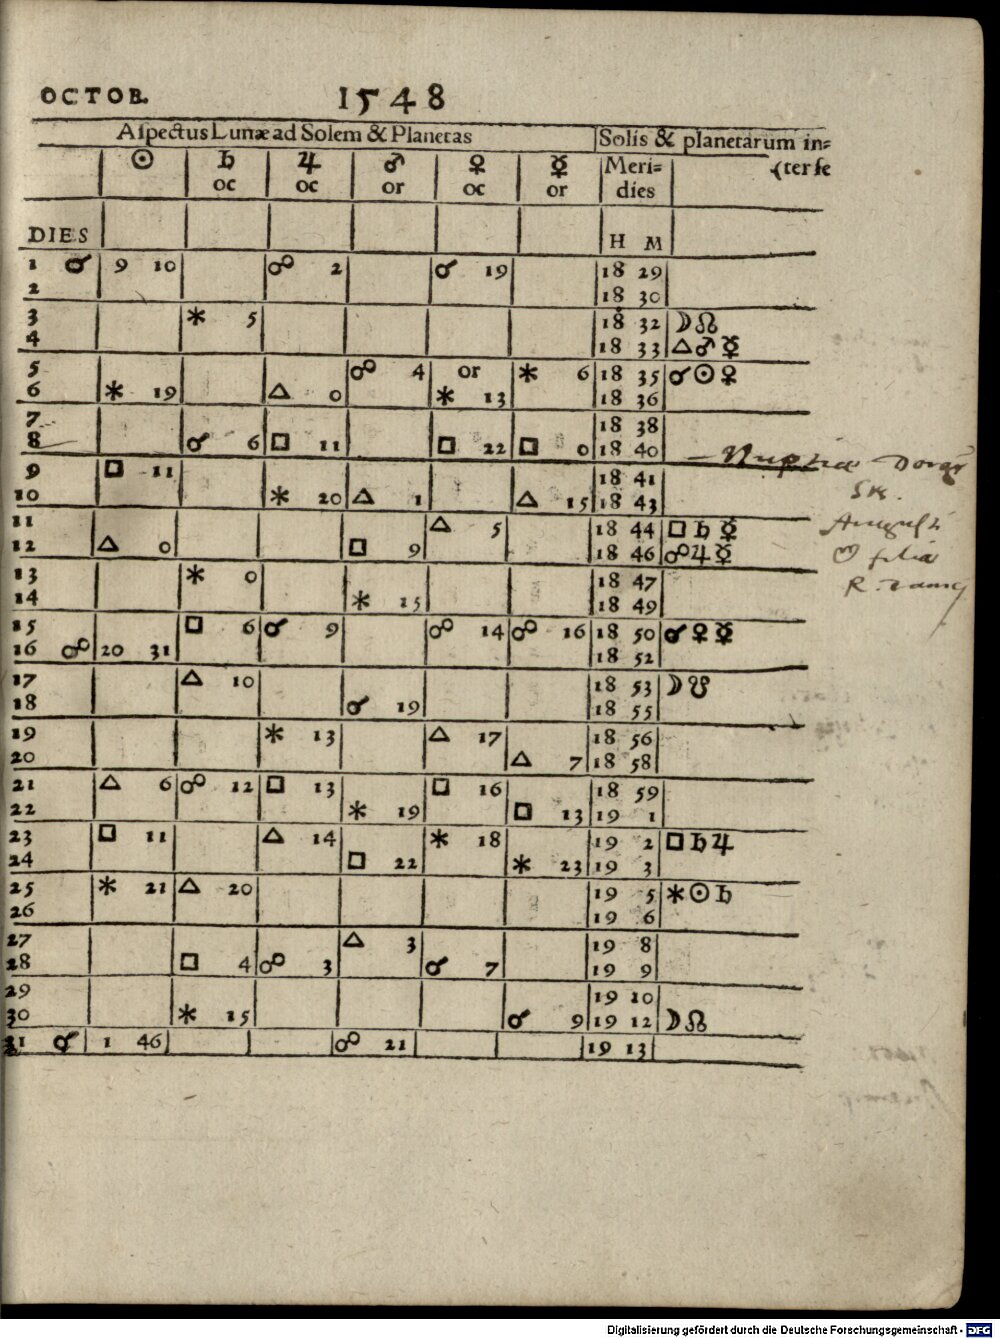 OCTOB. 1548
Aſpectus Lunæ ad Solem & Planetas Solis & planetarum in=
☉ ♄ ♃ ♂ ♀ ☿ Meri= (ter ſe
oc oc or oc or dies
DIES H M
1 ☌ 9 10 ☍ 2 ☌ 19 18 29
2 18 30
3 ⚹ 5 18 32 ☽☊
4 18 33 △♂☿
5 ☍ 4 or ⚹ 6 18 35 ☌☉♀
6 ⚹ 19 △ 0 ⚹ 13 18 36
7 18 38
8 ☌ 6 □ 11 □ 22 □ 0 18 40
9 □ 11 18 41
10 ⚹ 20 △ 1 △ 15 18 43
11 △ 5 18 44 □♄☿
12 △ 0 □ 9 18 46 ☍♃☿
13 ⚹ 0 18 47
14 ⚹ 15 18 49
15 □ 6 ☌ 9 ☍ 14 ☍ 16 18 50 ☌♀☿
16 ☍ 20 31 18 52
17 △ 10 18 53 ☽☋
18 ☌ 19 18 55
19 ⚹ 13 △ 17 18 56
20 △ 7 18 58
21 △ 6 ☍ 12 □ 13 □ 16 18 59
22 ⚹ 19 □ 13 19 1
23 □ 11 △ 14 ⚹ 18 19 2 □♄♃
24 □ 22 ⚹ 23 19 3
25 ⚹ 21 △ 20 19 5 ⚹☉♄
26 19 6
27 △ 3 19 8
28 □ 4 ☍ 3 ☌ 7 19 9
29 19 10
30 ⚹ 15 ☌ 9 19 12 ☽☊
31 ☌ 1 46 ☍ 21 19 13
Nuptiæ
filia
Digitalisierung gefördert durch die Deutsche Forschungsgemeinschaft - DFG